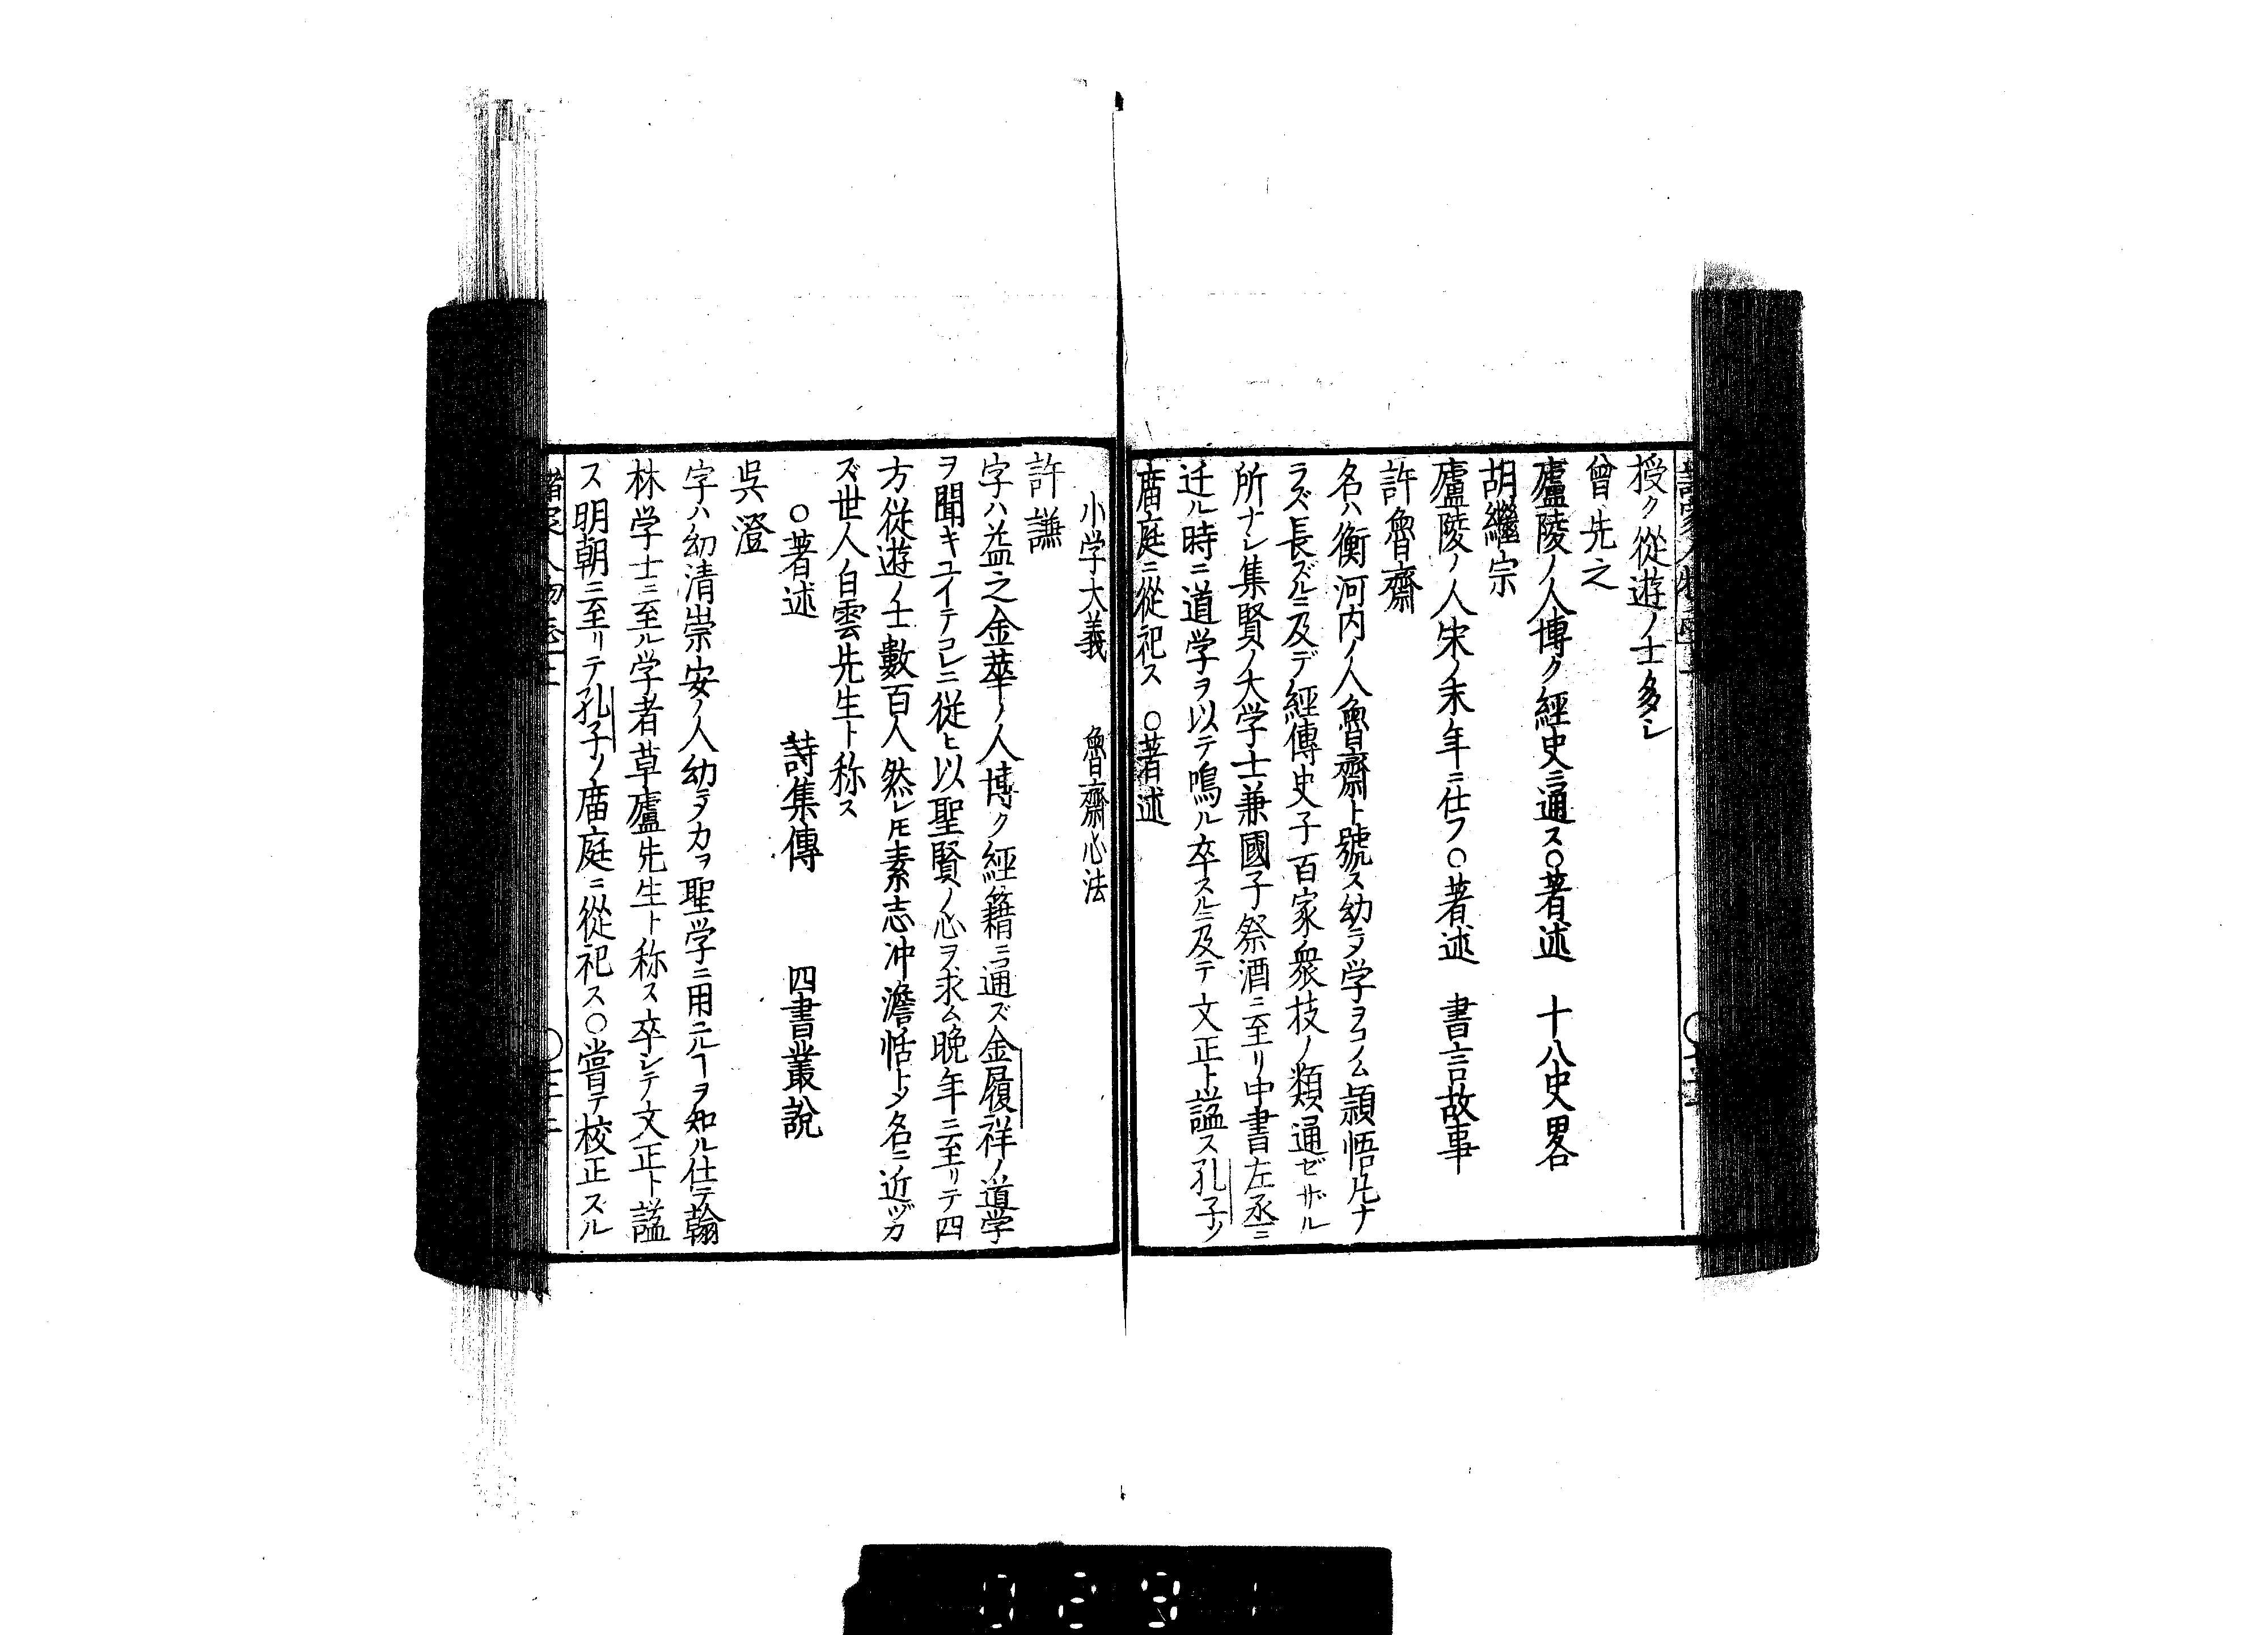 授ク從遊ノ士多シ
曾先之
廬陵ノ人博ク經史ニ通ス○著述　十八史畧
胡繼宗
廬陵ノ人宋ノ末年ニ仕フ○著述　書言故事
許魯齋
名ハ衡河内ノ人魯齋ト號ス幼ヨリ学ヲコノム頴悟凡ナ
ラズ長ズルニ及デ經傳史子百家衆技ノ類通ゼザル
所ナシ集賢ノ大学士兼國子祭酒ニ至リ中書左丞ニ
迁ル時ニ道学ヲ以テ鳴ル卒スルニ及テ文正ト謚ス孔子ノ
庿庭ニ從祀ス　○著述
小学大義　魯齋心法
許謙
字ハ益之金華ノ人博ク經籍ニ通ズ金履祥ノ道学
ヲ聞キユイテコレニ從ヒ以聖賢ノ心ヲ求ム晩年ニ至リテ四
方從遊ノ士數百人然レ𪜈素志冲澹恬トシテ名ニ近ヅカ
ズ世人白雲先生ト称ス
○著述　詩集傳　四書叢說
呉澄
字ハ幼清崇安ノ人幼ヨリ力ヲ聖学ニ用ルヿヲ知ル仕テ翰
林学士ニ至ル学者草廬先生ト称ス卒シテ文正ト謚
ス明朝ニ至リテ孔子ノ庿庭ニ從祀ス○嘗テ校正ズル
諸家人物志上